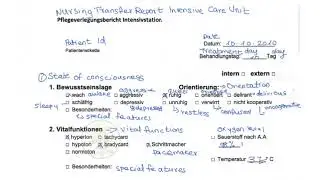 Nursing Transfer Report Intensive Care Unit
Pflegeverlegungsbericht Intensivstation.
Patient Id
Patientenetikette
Date
Datum: 10.10.2010
Treatment day day
Behandlungstag: Tag
intern □ extern □
① State of consciousness
1. Bewusstseinslage awake aggressive quiet Orientierung: → Orientation
wach □ aggressiv ruhig □ orientiert □ delirant → delirious
sleepy □ schläfrig □ depressiv □ unruhig □ verwirrt □ nicht kooperativ
□ Besonderheiten: depressive restless confused uncooperative
↳ special features
2. Vitalfunktionen → Vital functions oxygen
hyperton □ tachycard □ Sauerstoff nach A.A
□ hypoton bradycard □ Schrittmacher
□ normoton pacemaker
□ Temperatur 37°C
□ Besonderheiten: special features